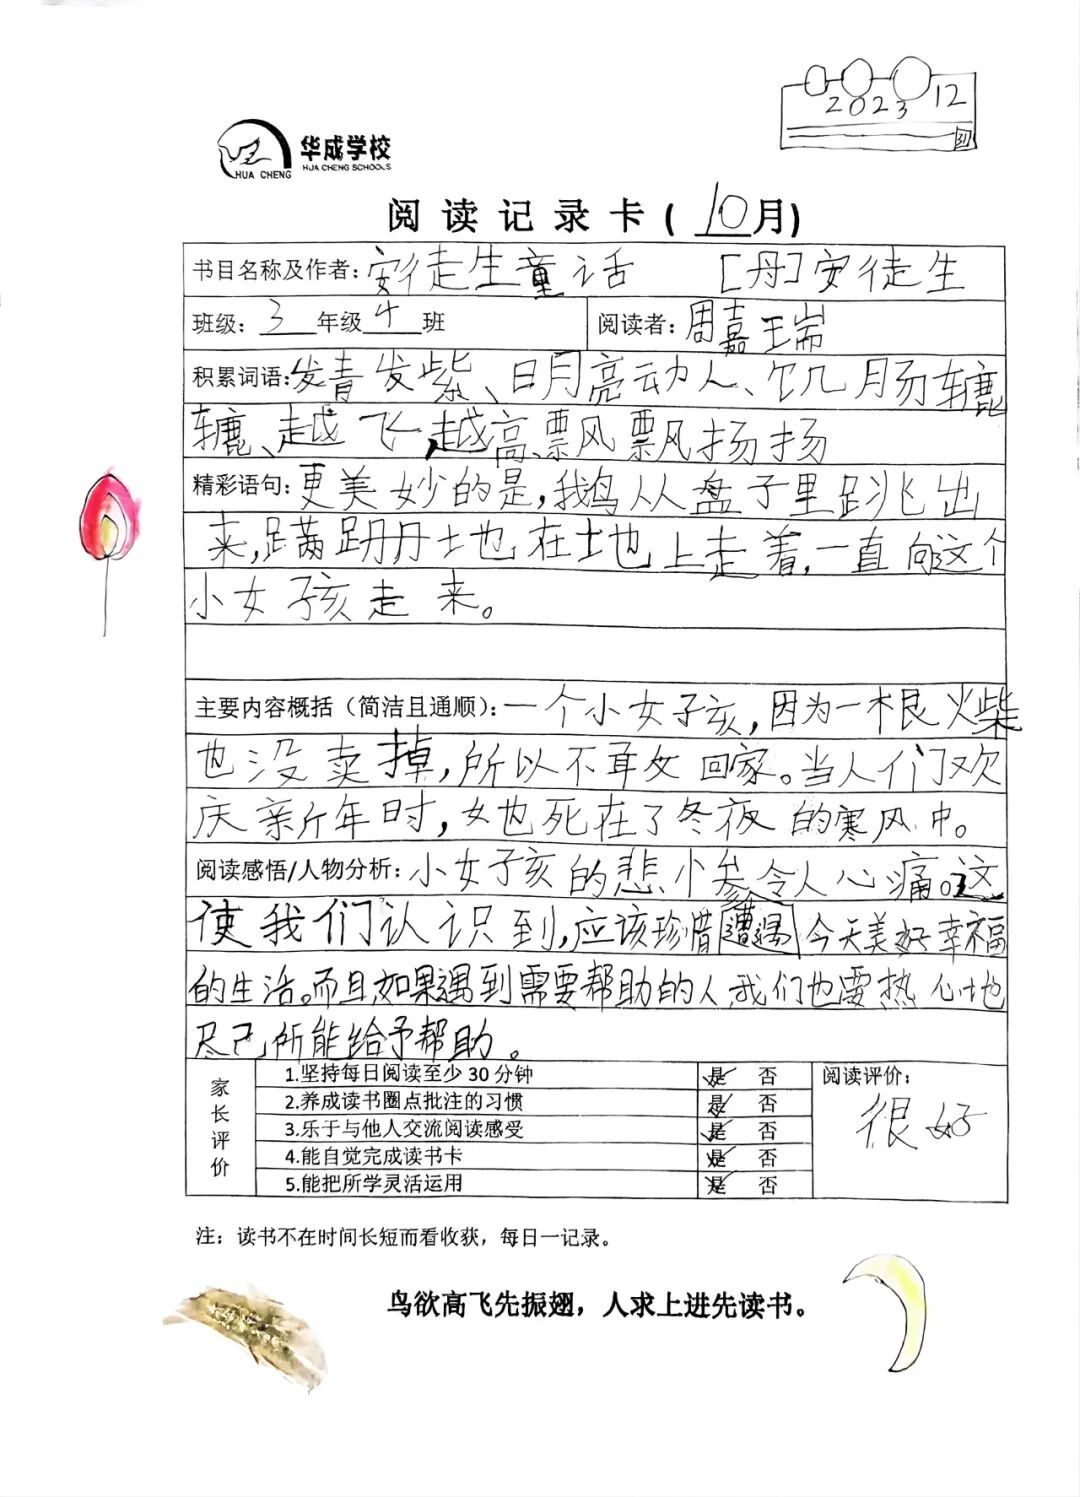 2023 12
31
华成学校
HUA CHENG SCHOOLS
HUA CHENG
阅读记录卡(10月)
书目名称及作者:安徒生童话 [丹]安徒生
班级:3年级4班 阅读者:周嘉瑞
积累词语:发青发紫、日月亮动人、饥肠辘
辘、越飞越高、飘飘扬扬
精彩语句:更美妙的是,我鸟从盘子里跳出
来,蹒跚地在地上走着,一直向这个
小女孩走来。
主要内容概括(简洁且通顺):一个小女孩,因为一根火柴
也没卖掉,所以不敢回家。当人们欢
庆新年时,她死在了冬夜的寒风中。
阅读感悟/人物分析:小女孩的悲惨令人心痛。这
使我们认识到,应该珍惜遭遇今天美好幸福
的生活。而且如果遇到需要帮助的人我们也要热心地
尽己所能给予帮助。
家长评价
1.坚持每日阅读至少30分钟 是 否
2.养成读书圈点批注的习惯 是 否
3.乐于与他人交流阅读感受 是 否
4.能自觉完成读书卡 是 否
5.能把所学灵活运用 是 否
阅读评价:
很好
注:读书不在时间长短而看收获,每日一记录。
鸟欲高飞先振翅,人求上进先读书。